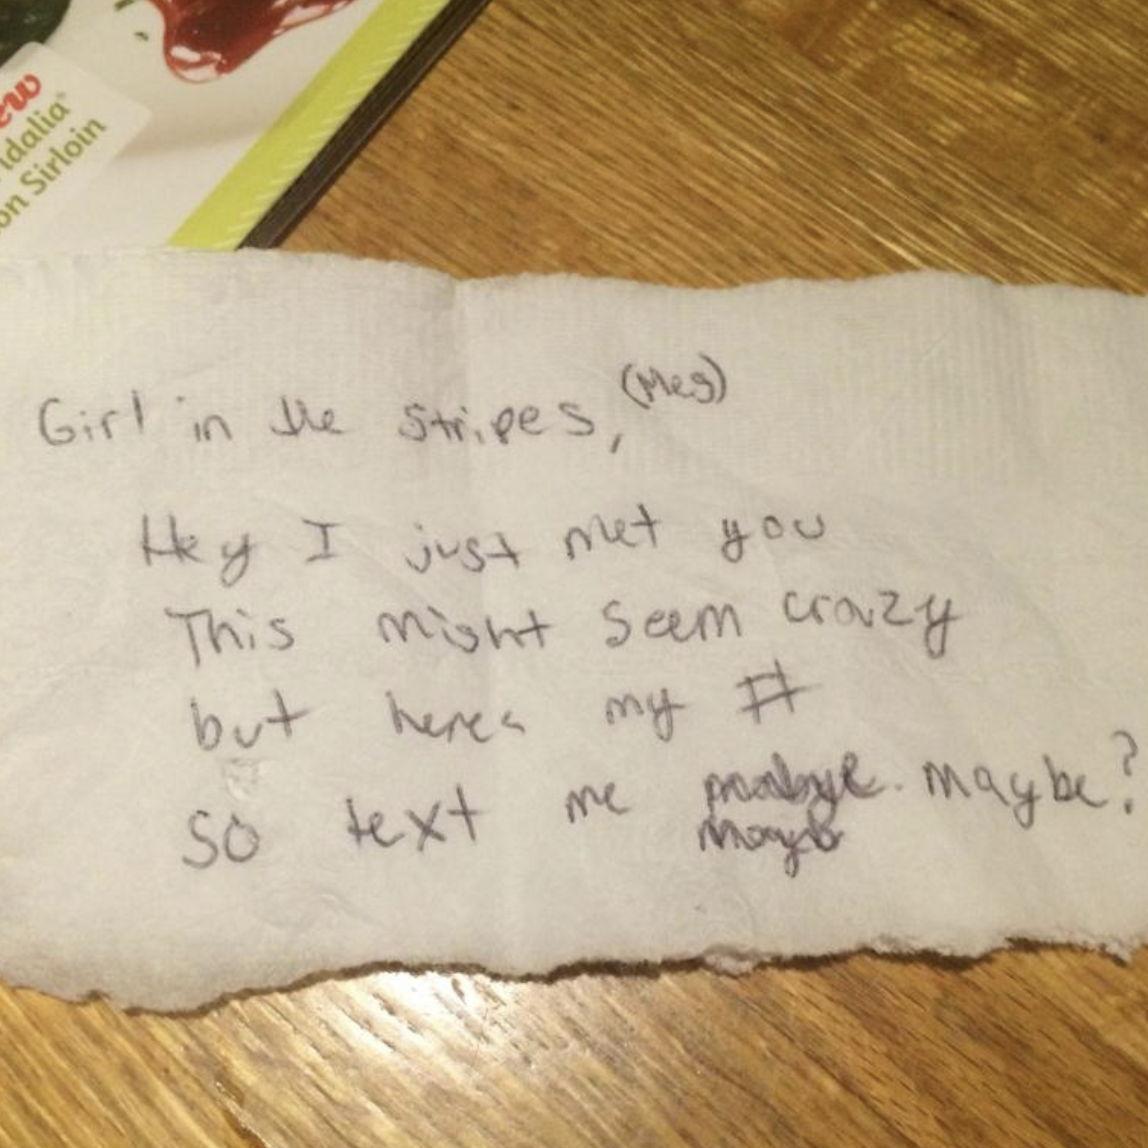 ew
idalia®
on Sirloin
Girl in the stripes, (Meg)
Hey I just met you
This might seem crazy
but heres my #
so text me maybe?